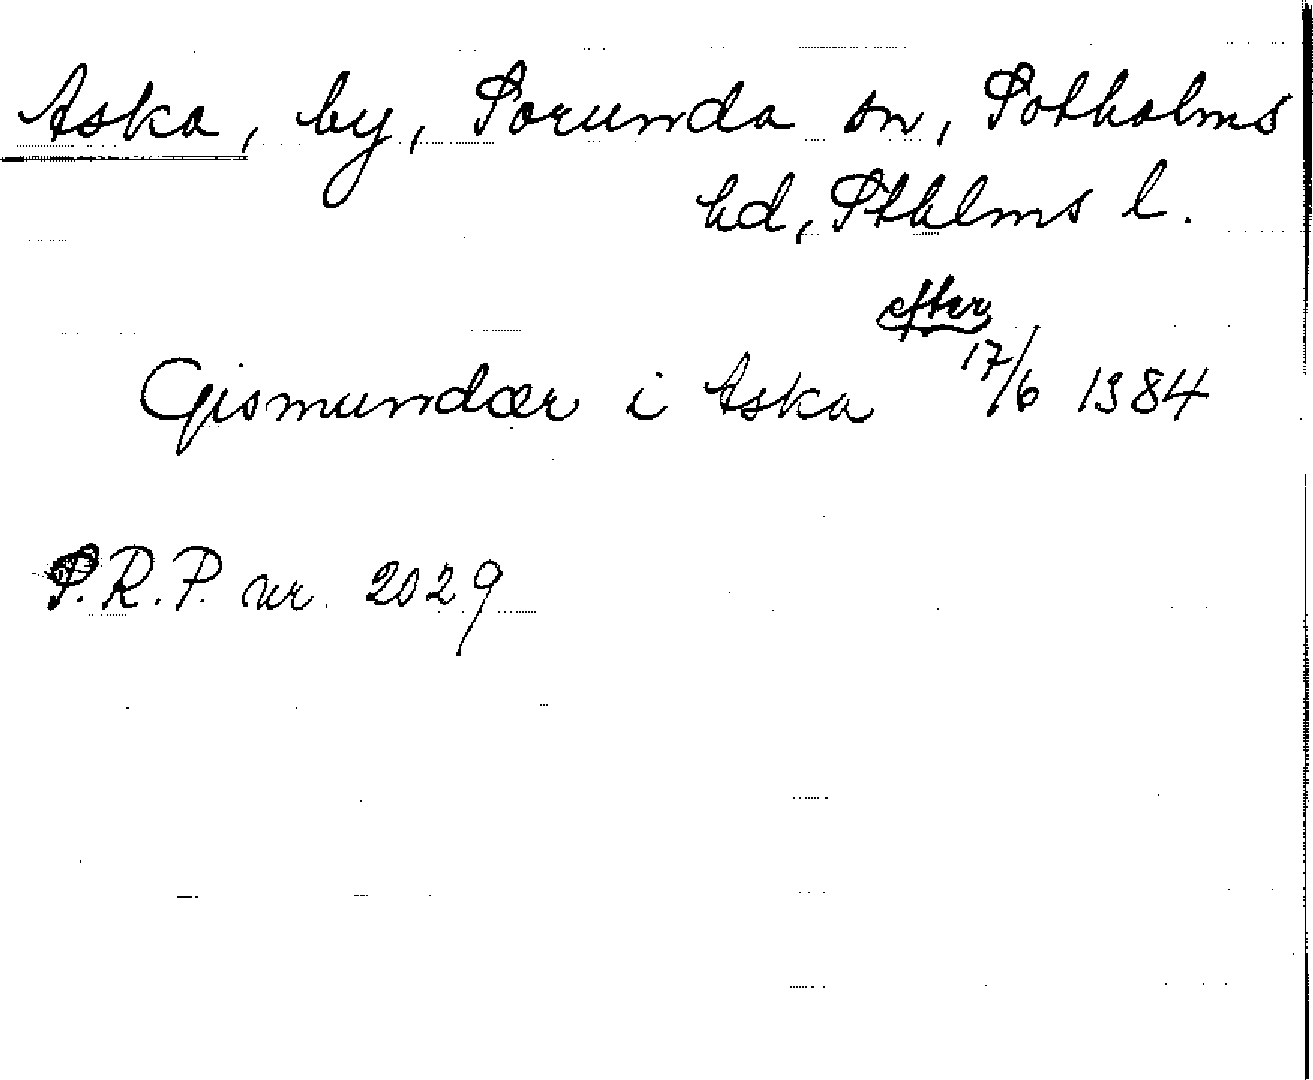 Aska, by, Sorunda sn, Sotholms
hd, Sthlms l.
efter
Gismundær i Aska 17/6 1384
S.R.P. nr. 2029